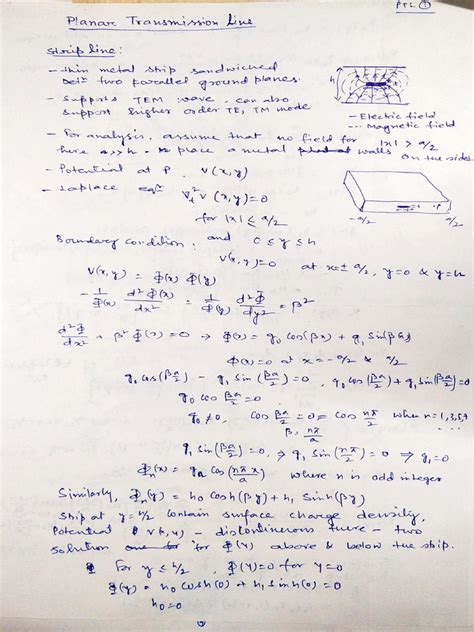 PTL ①
Planar Transmission Line
Strip line:
- Thin metal strip sandwiched
betn two parallel ground planes.
- Supports TEM wave, can also
support higher order TE, TM mode
h
— Electric field
--- Magnetic field
- For analysis, assume that no field for |x| > a/2
here a>>h. place a metal walls on the sides.
- Potential at P, V(x,y)
- Laplace eqn
∇t² V(x,y)=0
for |x| ≤ a/2
and 0 ≤ y ≤ h
-a/2 P a/2
Boundary condition:
V(x,y)=0 at x=± a/2, y=0 & y=h
V(x,y) = Φ(x) Φ(y)
- 1/Φ(x) d²Φ(x)/dx² = 1/Φ(y) d²Φ/dy² = β²
d²Φ/dx² + β² Φ(x) = 0 → Φ(x) = g₀ cos(βx) + g₁ Sin(βx)
Φ(x)=0 at x = -a/2 & a/2
g₀ cos(βa/2) - g₁ sin(βa/2) = 0, g₀ cos(βa/2) + g₁ sin(βa/2) = 0
g₀ cos βa/2 = 0
g₀ ≠ 0, cos βa/2 = 0 = cos nπ/2 when n = 1,3,5,9
βn nπ/a
g₁ sin(βa/2) = 0, → g₁ sin(nπ/2) = 0 → g₁ = 0
Φn(x) = gn cos(nπx/a) where n is odd integer
Similarly, Φn(y) = h₀ cosh(βy) + h₁ Sinh(βy)
Strip at y=h/2 contain surface charge density,
Potential V(x,y) - discontinuous there - two
solution for Φ(y) above & below the strip.
For y ≤ h/2, Φ(y)=0 for y=0
Φ(y) = h₀ cosh(0) + h₁ sinh(0) = 0
h₀=0